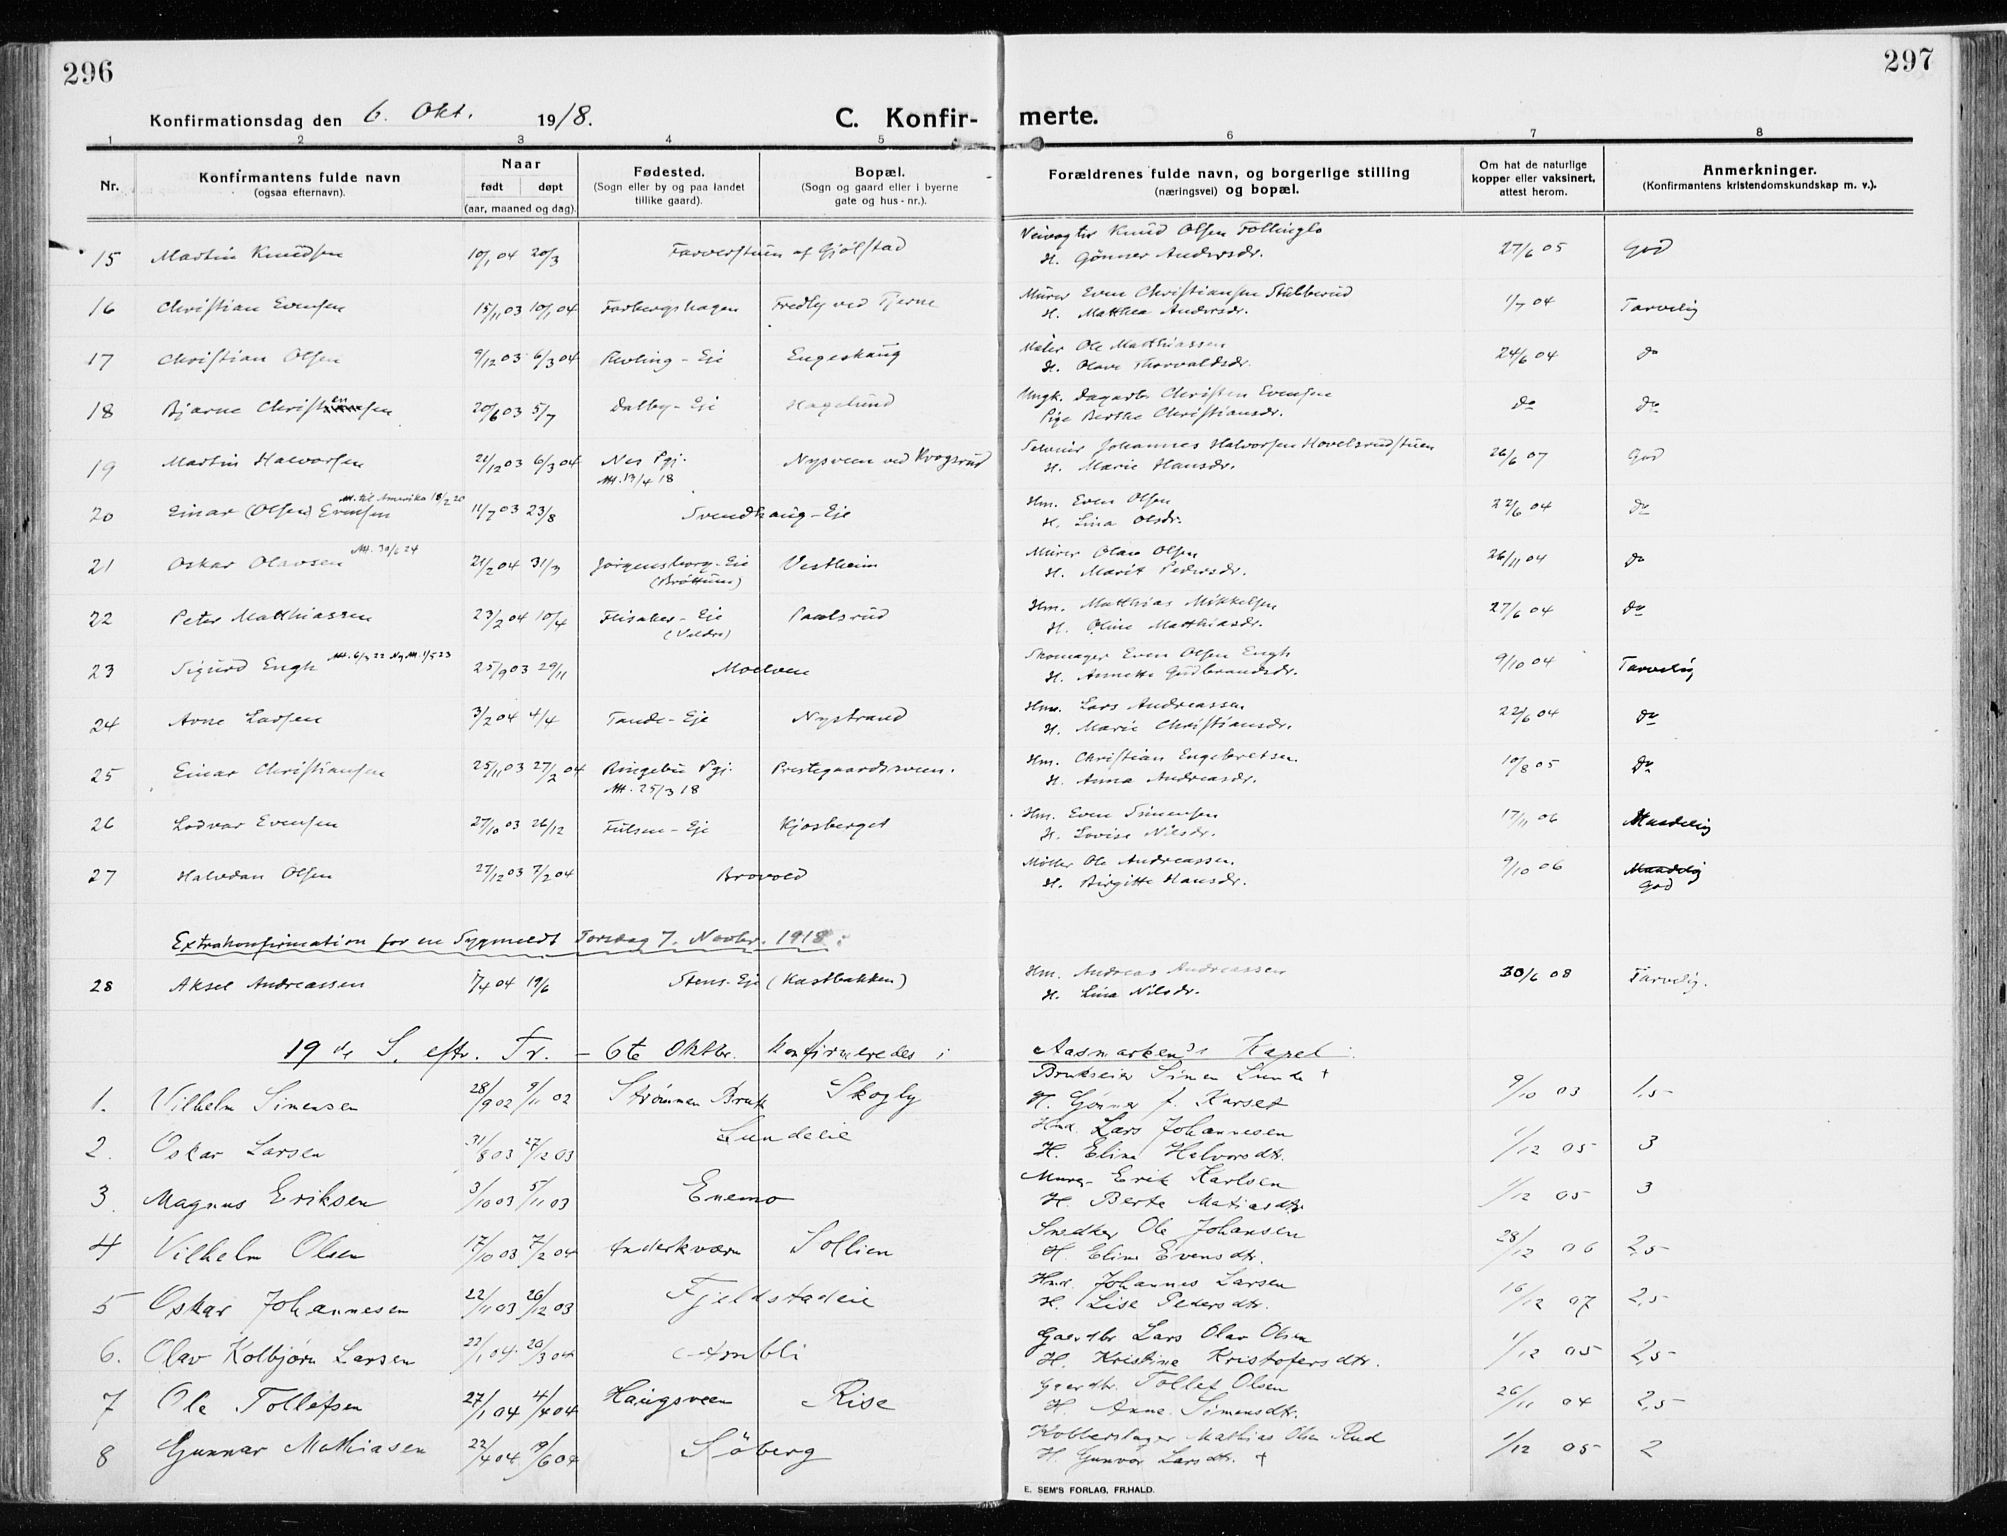 296
297
Konfirmationsdag den 6. Okt. 1918.
C. Konfir- merte.
1 2 3 4 5 6 7 8
Nr.
Konfirmantens fulde navn
(ogsaa efternavn).
Naar
født døpt
(aar, maaned og dag).
Fødested.
(Sogn eller by og paa landet
tillike gaard).
Bopæl.
(Sogn og gaard eller i byerne
gate og hus-nr.).
Forældrenes fulde navn, og borgerlige stilling
(næringsvei) og bopæl.
Om hat de naturlige
kopper eller vaksinert,
attest herom.
Anmerkninger.
(Konfirmantens kristendomskundskap m. v.).
15 Martin Knudsen 10/1 04 20/3 Farverstuen af Gjölstad Veivogter Knud Olsen Follinglo 27/6 05 God
H. Gønner Andersdr.
16 Christian Evensen 15/11 03 10/1 04 Farbergshagen Fredly ved Tjerne Mürer Even Christiansen Stubberud 1/7 04 Tarvelig
H. Matthea Andersdr.
17 Christian Olsen 9/12 03 6/3 04 Revling - Eje Engeskaug Maler Ole Matthiassen 24/6 04 do
H. Olave Thorvaldsdr.
18 Bjarne Christensen 20/6 03 5/7 Dalby - Eje Hagelund Ungk. Dagarb. Christen Evensen do do
Pige Berthe Christiansdr.
19 Martin Halvorsen 21/12 03 6/3 04 Nes Pgj. Nysveen ved Krogsrud Selveier Johannes Halvorsen Hovelsrudstuen 26/6 07 God
Att. 19/4 18 H. Marie Hansdr.
Att. til Amerika 18/2 20
20 Einar (Olsen) Evensen 11/7 03 23/8 Svendhaug - Eje Hm. Even Olsen 22/6 04 do
H. Lina Olsdr.
Att. 30/6 24
21 Oskar Olavsen 21/2 04 31/3 Jörgensborg - Eje Vestheim Mürer Olav Olsen 26/11 04 do
(Bröttum) H. Marit Pedersdr.
22 Peter Matthiassen 23/2 04 10/4 Flisaker - Eje Paalsrud Hm. Matthias Mikkelsen 27/6 04 do
(Veldre) H. Oline Matthiasdr.
Att. 6/3 22 Ny Att. 1/5 23
23 Sigurd Engh 25/9 03 29/11 Moelven Skomager Even Olsen Engh 9/10 04 Tarvelig
H. Annette Gudbrandsdr.
24 Arne Larsen 3/2 04 4/4 Tande - Eje Nystrand Hm. Lars Andreassen 22/6 04 do
H. Marie Christiansdr.
25 Einar Christiansen 25/11 03 27/2 04 Ringebu Pgj. Prestegaardsveen. Hm. Christian Engebretsen 10/8 05 do
Att. 25/3 18 H. Anna Andreasdr.
26 Lodvar Evensen 27/10 03 26/12 Fulsen - Eje Kjosberget Hm. Even Simensen 17/11 06 Maadelig
H. Lovise Nilsdr.
27 Halvdan Olsen 27/12 03 7/2 04 Brovold Møller Ole Andreassen. 9/10 06 Maadelig
H. Birgitte Hansdr. God
Extrakonfirmation for en Sygmeldt Torsdag 7. Novbr. 1918:
28 Aksel Andreassen 7/4 04 19/6 Stens-Eje (Kastbakken) Hm. Andreas Andreassen 30/6 08 Tarvelig.
H. Lina Nilsdr.
19de S. eftr. Tr. - 6te Oktbr. Konfirmeredes i Aasmarkens Kapel:
1. Vilhelm Simensen 28/9 02 9/11 02 Strömmen Bruk Skogly Brukseier Simen Lunde + 9/10 03 1,5
H. Gönner f. Karset
2. Oskar Larsen 31/8 03 27/12 03 Lundeeie Hmd. Lars Johannesen 1/12 05 3
H. Elina Halvorsdtr.
3. Magnus Eriksen 3/10 03 5/11 03 Enemo Murer Erik Karlsen 1/12 05 3
H. Berte Matiasdtr
4 Vilhelm Olsen 17/10 03 7/2 04 Sollien Snedker Ole Johansen 28/12 06 2,5
H. Eline Evensdtr.
5 Oskar Johannesen 22/11 03 26/12 03 Fjeldstadeie Hmd. Johannes Larsen 16/12 07 2,5
H. Lise Pedersdtr.
6. Olav Kolbjørn Larsen 22/1 04 20/3 04 Gaardbr Lars Olav Olsen 1/12 05 2,5
H. Kristine Kristofersdtr.
7 Ole Tollefsen 27/1 04 4/4 04 Haugsveen Rise Gaardbr. Tollef Olsen 26/11 04 2,5
H. Anne Simensdtr.
8 Gunnar Mathiasen 22/4 04 19/6 04 Söberg Kobberslager Mathias Olsen Rud 1/12 05 2
H. Gunvor Larsdtr. +
E. SEM'S FORLAG, FR.HALD.